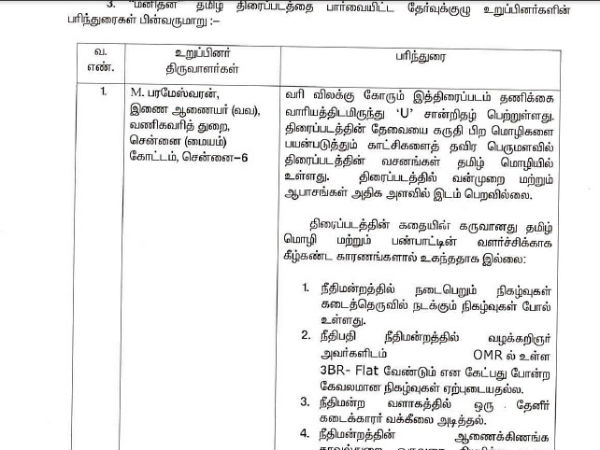 3. "மனிதன்" தமிழ் திரைப்படத்தை பார்வையிட்ட தேர்வுக்குழு உறுப்பினர்களின்
பரிந்துரைகள் பின்வருமாறு :–
வ. எண்.
உறுப்பினர் திருவாளர்கள்
பரிந்துரை
1.
M. பரமேஸ்வரன்,
இணை ஆணையர் (வவ),
வணிகவரித் துறை,
சென்னை (மையம்)
கோட்டம், சென்னை–6
வரி விலக்கு கோரும் இத்திரைப்படம் தணிக்கை
வாரியத்திடமிருந்து 'U' சான்றிதழ் பெற்றுள்ளது.
திரைப்படத்தின் தேவையை கருதி பிற மொழிகளை
பயன்படுத்தும் காட்சிகளைத் தவிர பெருமளவில்
திரைப்படத்தின் வசனங்கள் தமிழ் மொழியில்
உள்ளது. திரைப்படத்தில் வன்முறை மற்றும்
ஆபாசங்கள் அதிக அளவில் இடம் பெறவில்லை.
திரைப்படத்தின் கதையின் கருவானது தமிழ்
மொழி மற்றும் பண்பாட்டின் வளர்ச்சிக்காக
கீழ்கண்ட காரணங்களால் உகந்ததாக இல்லை:
1. நீதிமன்றத்தில் நடைபெறும் நிகழ்வுகள்
கடைத்தெருவில் நடக்கும் நிகழ்வுகள் போல்
உள்ளது.
2. நீதிபதி நீதிமன்றத்தில் வழக்கறிஞர்
அவர்களிடம் OMR ல் உள்ள
3BR- Flat வேண்டும் என கேட்பது போன்ற
கேவலமான நிகழ்வுகள் ஏற்புடையதல்ல.
3. நீதிமன்ற வளாகத்தில் ஒரு தேனீர்
கடைக்காரர் வக்கீலை அடித்தல்.
4. நீதிமன்றத்தின் ஆணைக்கிணங்க